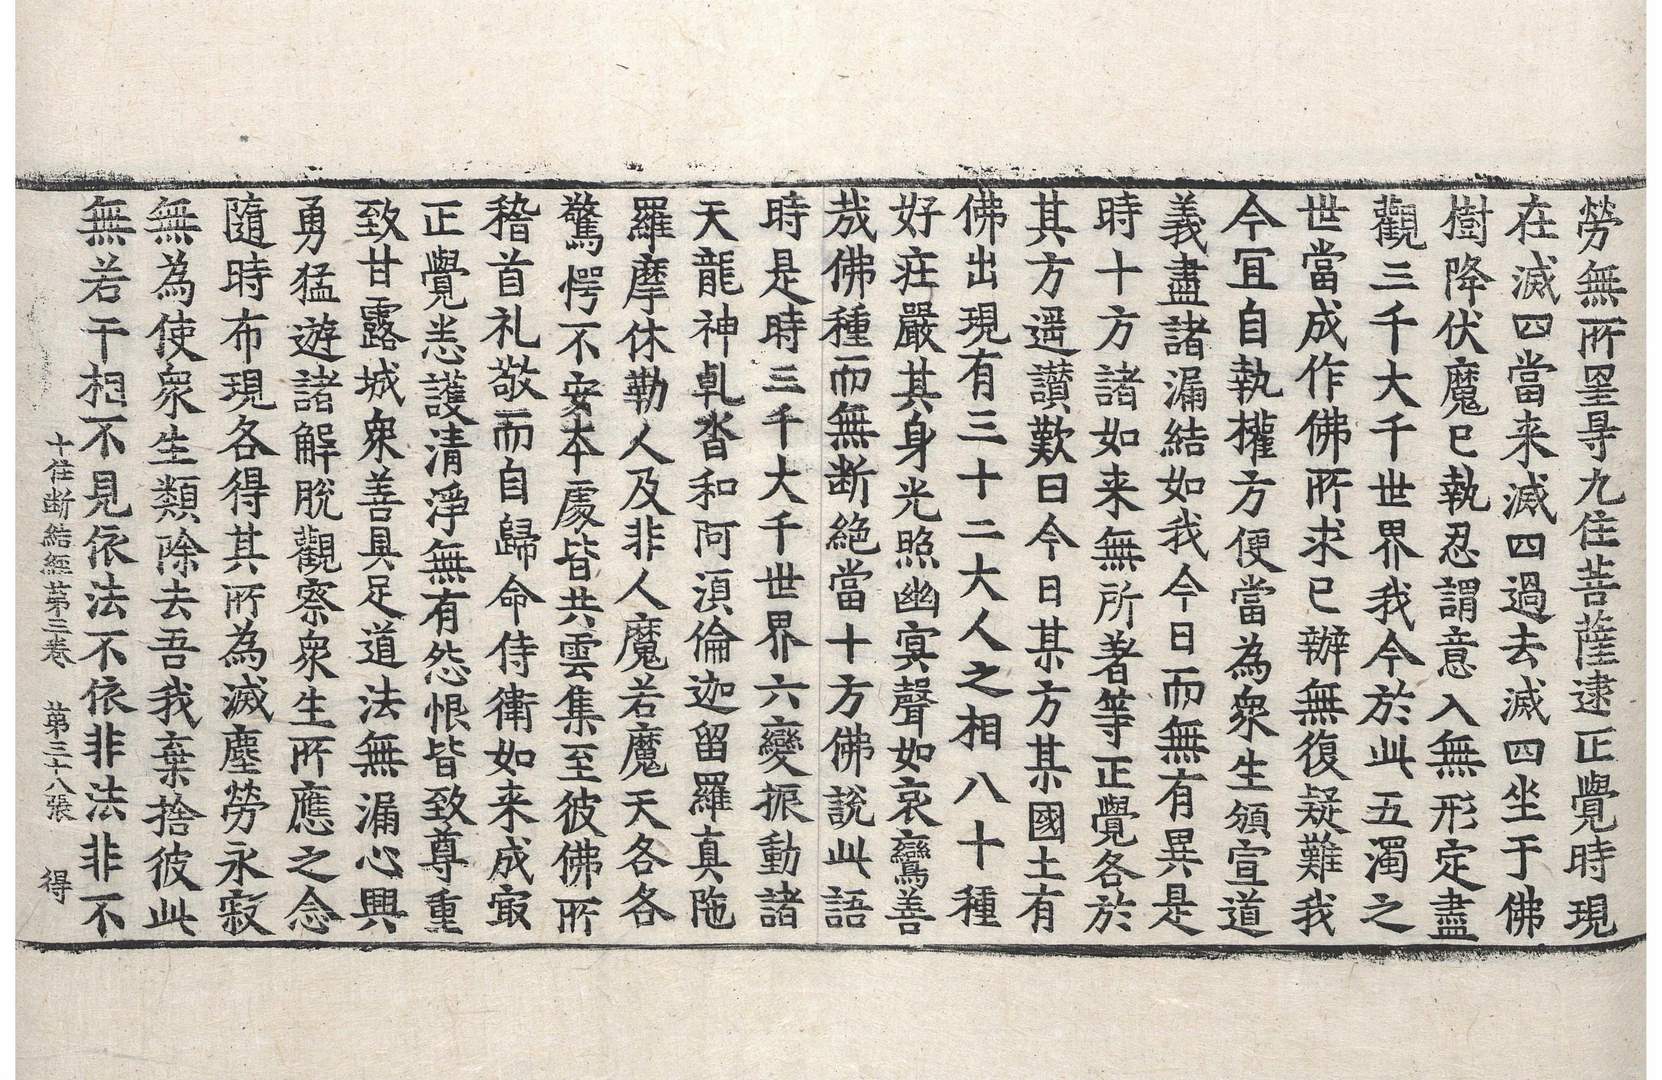 勞無所罣㝵九住菩薩逮正覺時現
在滅四當来滅四過去滅四坐于佛
樹降伏魔已執忍謂意入無形定盡
觀三千大千世界我今於此五濁之
世當成作佛所求已辦無復疑難我
今宜自執權方便當為衆生頒宣道
義盡諸漏結如我今日而無有異是
時十方諸如来無所著等正覺各於
其方遥讃歎曰今日某方某國土有
佛出現有三十二大人之相八十種
好莊嚴其身光照幽冥聲如哀鸞善
㢤佛種而無断絶當十方佛說此語
時是時三千大千世界六變振動諸
天龍神乹沓和阿湏倫迦留羅真陁
羅摩休勒人及非人魔若魔天各各
驚愕不安本處皆共雲集至彼佛所
稽首礼敬而自歸命侍衛如来成㝡
正覺悉護清淨無有怨恨皆致尊重
致甘露城衆善具足道法無漏心興
勇猛遊諸解脫觀察衆生所應之念
隨時布現各得其所為滅塵勞永寂
無為使衆生類除去吾我棄捨彼此
無若干相不見依法不依非法非不
十住断結經苐三卷　苐三十八張　得